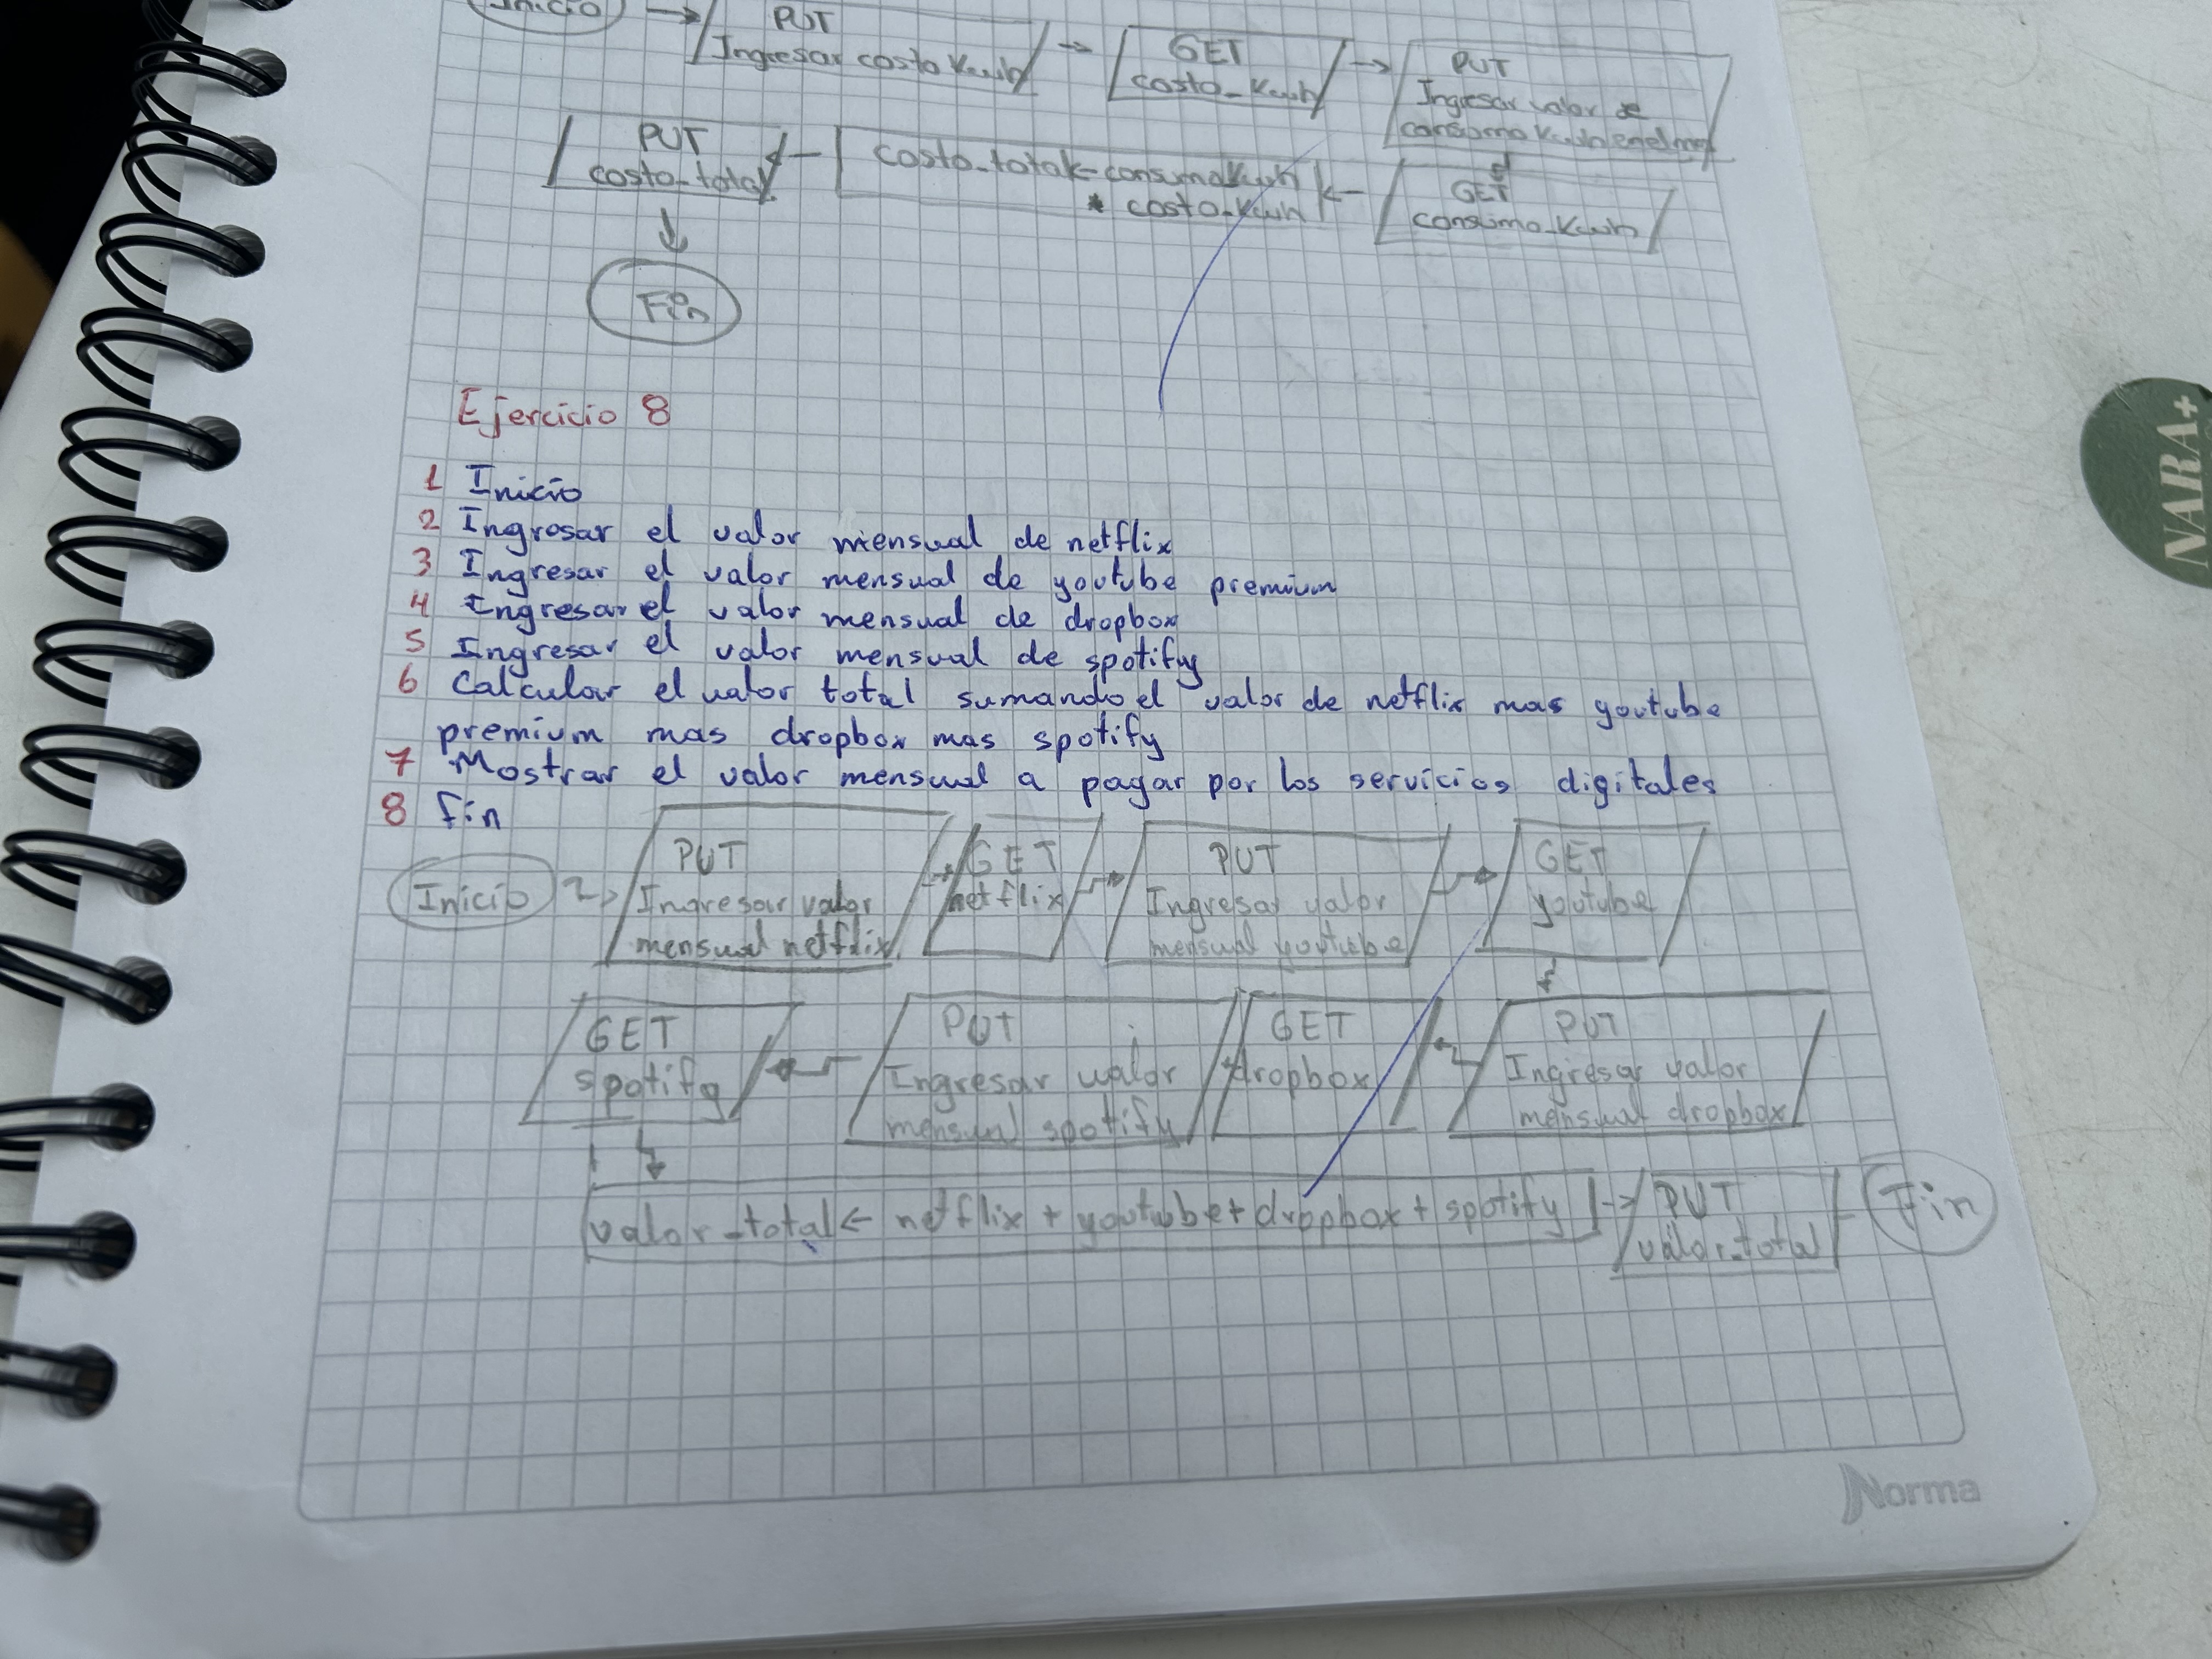 Inicio
PUT
Ingresar costo Kwh
GET
costo_Kwh
PUT
Ingresar valor de
consumo Kwh en el mes
PUT
costo_total
costo_total←consumo_Kwh
* costo_Kwh
GET
consumo_Kwh
Fin
Ejercicio 8
1 Inicio
2 Ingrosar el valor mensual de netflix
3 Ingresar el valor mensual de youtube premium
4 Ingresar el valor mensual de dropbox
5 Ingresar el valor mensual de spotify
6 Calcular el valor total sumando el valor de netflix mas youtube
premium mas dropbox mas spotify
7 Mostrar el valor mensual a pagar por los servicios digitales
8 fin
Inicio
PUT
Ingresar valor
mensual netflix
GET
netflix
PUT
Ingresar valor
mensual youtube
GET
youtube
GET
spotify
PUT
Ingresar valor
mensual spotify
GET
dropbox
PUT
Ingresar valor
mensual dropbox
valor_total← netflix + youtube+ dropbox + spotify
PUT
valor_total
Fin
Norma
NARA+